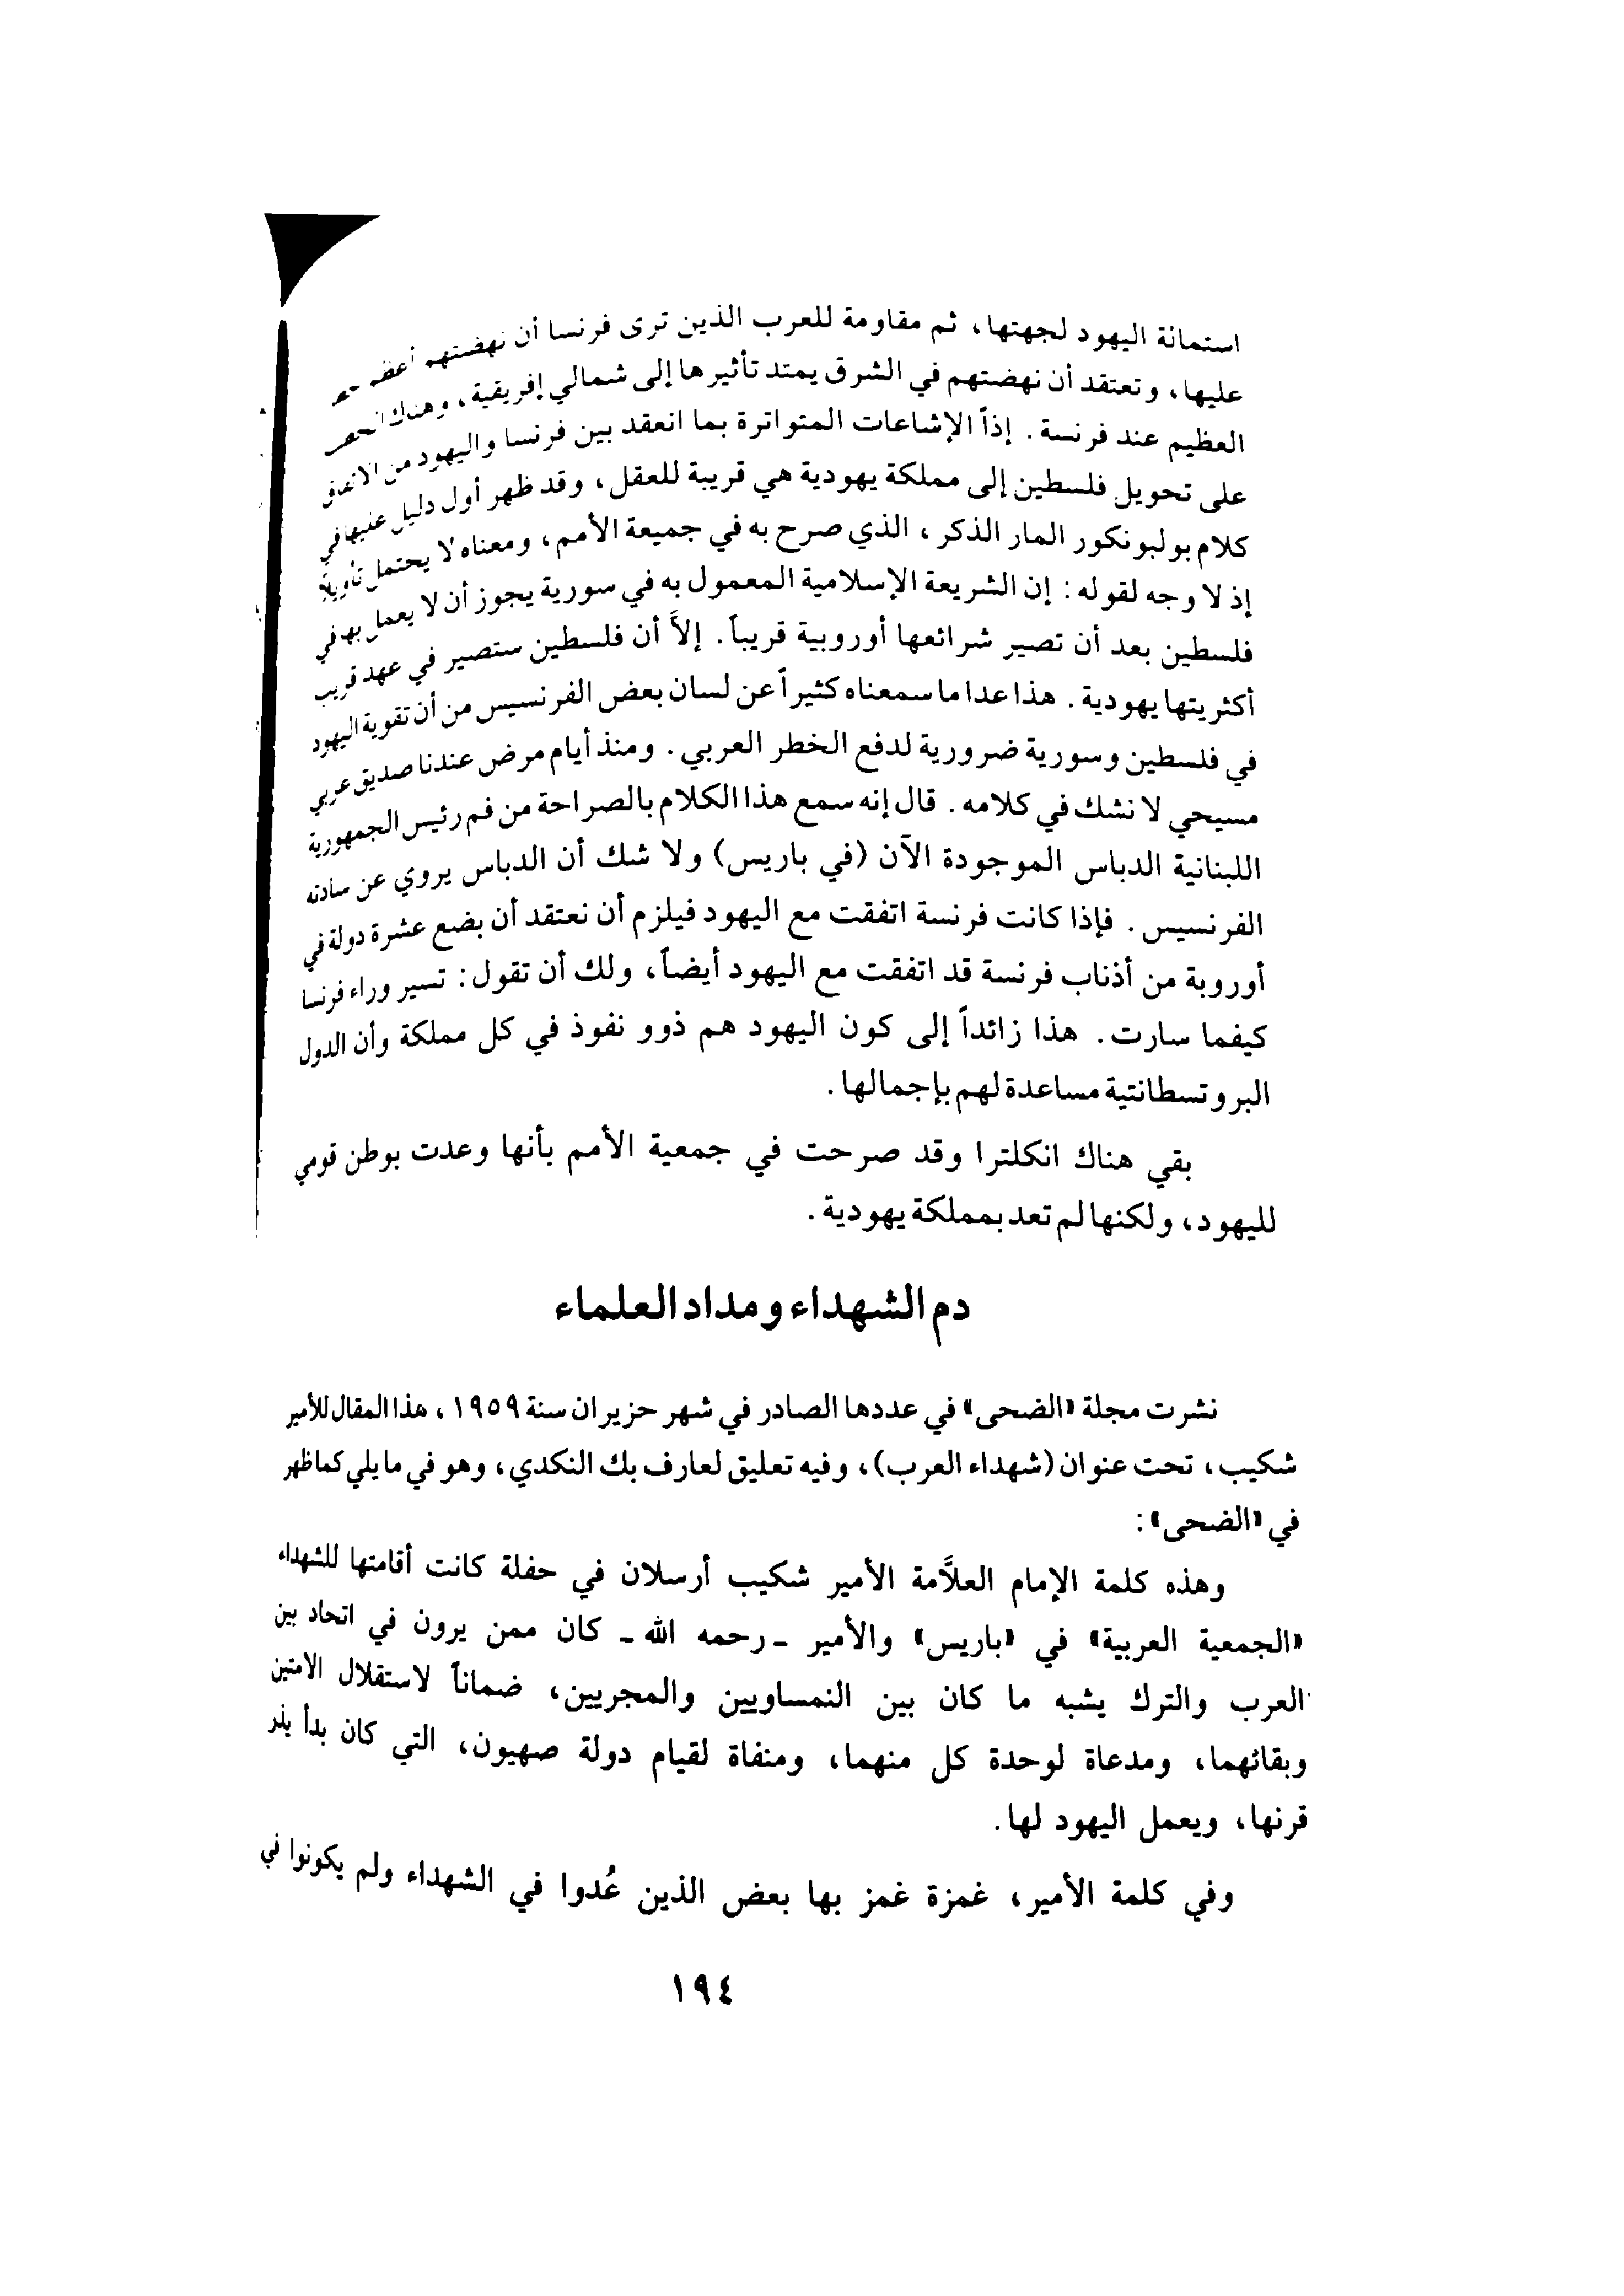 استمالة اليهود لجهتها، ثم مقاومة للعرب الذين ترى فرنسا أن نهضتهم أعظم خطر
عليها، وتعتقد أن نهضتهم في الشرق يمتد تأثيرها إلى شمالي إفريقية، وهناك الخطر
العظيم عند فرنسة. إذاً الإشاعات المتواترة بما انعقد بين فرنسا واليهود من الاتفاق
على تحويل فلسطين إلى مملكة يهودية هي قريبة للعقل، وقد ظهر أول دليل عليها في
كلام بولبونكور المار الذكر، الذي صرح به في جميعة الأمم، ومعناه لا يحتمل تأويلاً
إذ لا وجه لقوله: إن الشريعة الإسلامية المعمول به في سورية يجوز أن لا يعمل بها في
فلسطين بعد أن تصير شرائعها أوروبية قريباً. إلاَّ أن فلسطين ستصير في عهد قريب
أكثريتها يهودية. هذا عدا ما سمعناه كثيراً عن لسان بعض الفرنسيس من أن تقوية اليهود
في فلسطين وسورية ضرورية لدفع الخطر العربي. ومنذ أيام مرض عندنا صديق عربي
مسيحي لا نشك في كلامه. قال إنه سمع هذا الكلام بالصراحة من فم رئيس الجمهورية
اللبنانية الدباس الموجودة الآن (في باريس) ولا شك أن الدباس يروي عن سادته
الفرنسيس. فإذا كانت فرنسة اتفقت مع اليهود فيلزم أن نعتقد أن بضع عشرة دولة في
أوروبة من أذناب فرنسة قد اتفقت مع اليهود أيضاً، ولك أن تقول: تسير وراء فرنسا
كيفما سارت. هذا زائداً إلى كون اليهود هم ذوو نفوذ في كل مملكة وأن الدول
البروتسطانتية مساعدة لهم بإجمالها.
بقي هناك انكلترا وقد صرحت في جمعية الأمم بأنها وعدت بوطن قومي
لليهود، ولكنها لم تعد بمملكة يهودية.
دم الشهداء ومداد العلماء
نشرت مجلة «الضحى» في عددها الصادر في شهر حزيران سنة ١٩٥٩، هذا المقال للأمير
شكيب، تحت عنوان (شهداء العرب)، وفيه تعليق لعارف بك النكدي، وهو في ما يلي كما ظهر
في «الضحى»:
وهذه كلمة الإمام العلاَّمة الأمير شكيب أرسلان في حفلة كانت أقامتها للشهداء
«الجمعية العربية» في «باريس» والأمير ـ رحمه الله ـ كان ممن يرون في اتحاد بين
العرب والترك يشبه ما كان بين النمساويين والمجريين، ضماناً لاستقلال الامتين
وبقائهما، ومدعاة لوحدة كل منهما، ومنفاة لقيام دولة صهيون، التي كان بدأ يذر
قرنها، ويعمل اليهود لها.
وفي كلمة الأمير، غمزة غمز بها بعض الذين عُدوا في الشهداء ولم يكونوا في
١٩٤